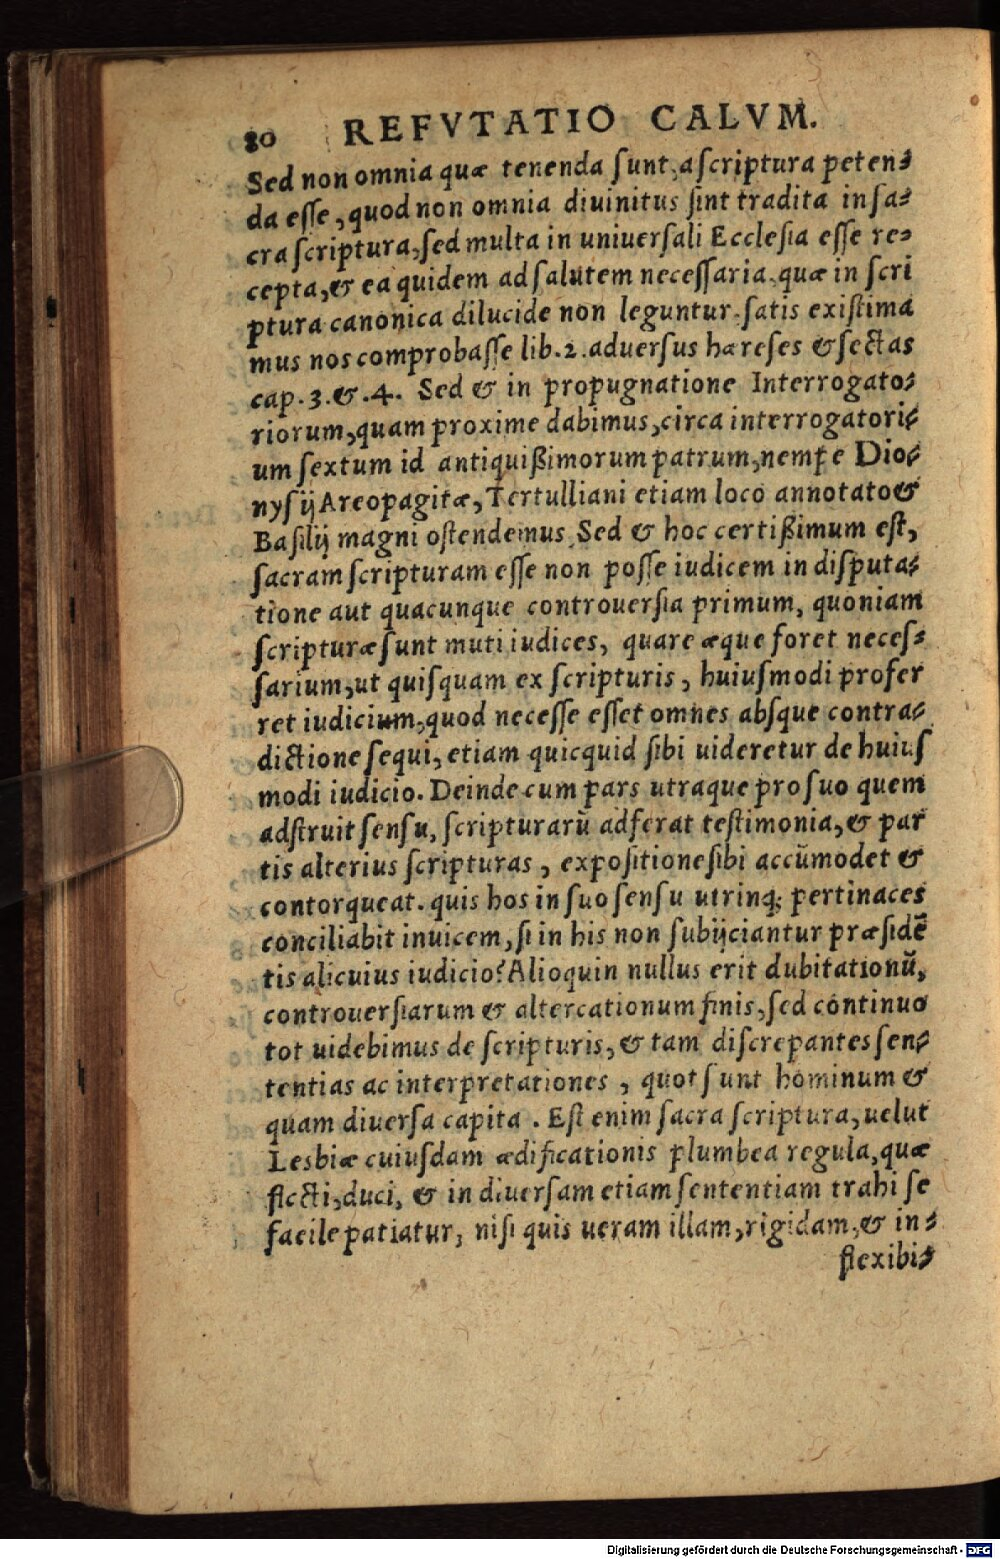 80 REFVTATIO CALVM.
Sed non omnia quæ tenenda sunt, a scriptura peten-
da esse, quod non omnia diuinitus sint tradita in sa-
cra scriptura, sed multa in uniuersali Ecclesia esse re-
cepta, & ea quidem ad salutem necessaria, quæ in scri
ptura canonica dilucide non leguntur, satis existima
mus nos comprobasse lib. 2. aduersus hæreses & sectas
cap. 3. &. 4. Sed & in propugnatione Interrogato-
riorum, quam proxime dabimus, circa interrogatori-
um sextum id antiquißimorum patrum, nempe Dio-
nysij Areopagitæ, Tertulliani etiam loco annotato &
Basilij magni ostendemus. Sed & hoc certißimum est,
sacram scripturam esse non posse iudicem in disputa-
tione aut quacunque controuersia primum, quoniam
scripturæ sunt muti iudices, quare æque foret neces-
sarium, ut quisquam ex scripturis, huiusmodi profer
ret iudicium, quod necesse esset omnes absque contra-
dictione sequi, etiam quicquid sibi uideretur de huius
modi iudicio. Deinde cum pars utraque pro suo quem
adstruit sensu, scripturarū adferat testimonia, & par
tis alterius scripturas, expositione sibi accūmodet &
contorqueat. quis hos in suo sensu utrinq; pertinaces
conciliabit inuicem, si in his non subijciantur præsidē
tis alicuius iudicio? Alioquin nullus erit dubitationū,
controuersiarum & altercationum finis, sed continuo
tot uidebimus de scripturis, & tam discrepantes sen-
tentias ac interpretationes, quot sunt hominum &
quam diuersa capita. Est enim sacra scriptura, uelut
Lesbiæ cuiusdam ædificationis plumbea regula, quæ
flecti, duci, & in diuersam etiam sententiam trahi se
facile patiatur, nisi quis ueram illam, rigidam, & in-
flexibi-
Digitalisierung gefördert durch die Deutsche Forschungsgemeinschaft - DFG